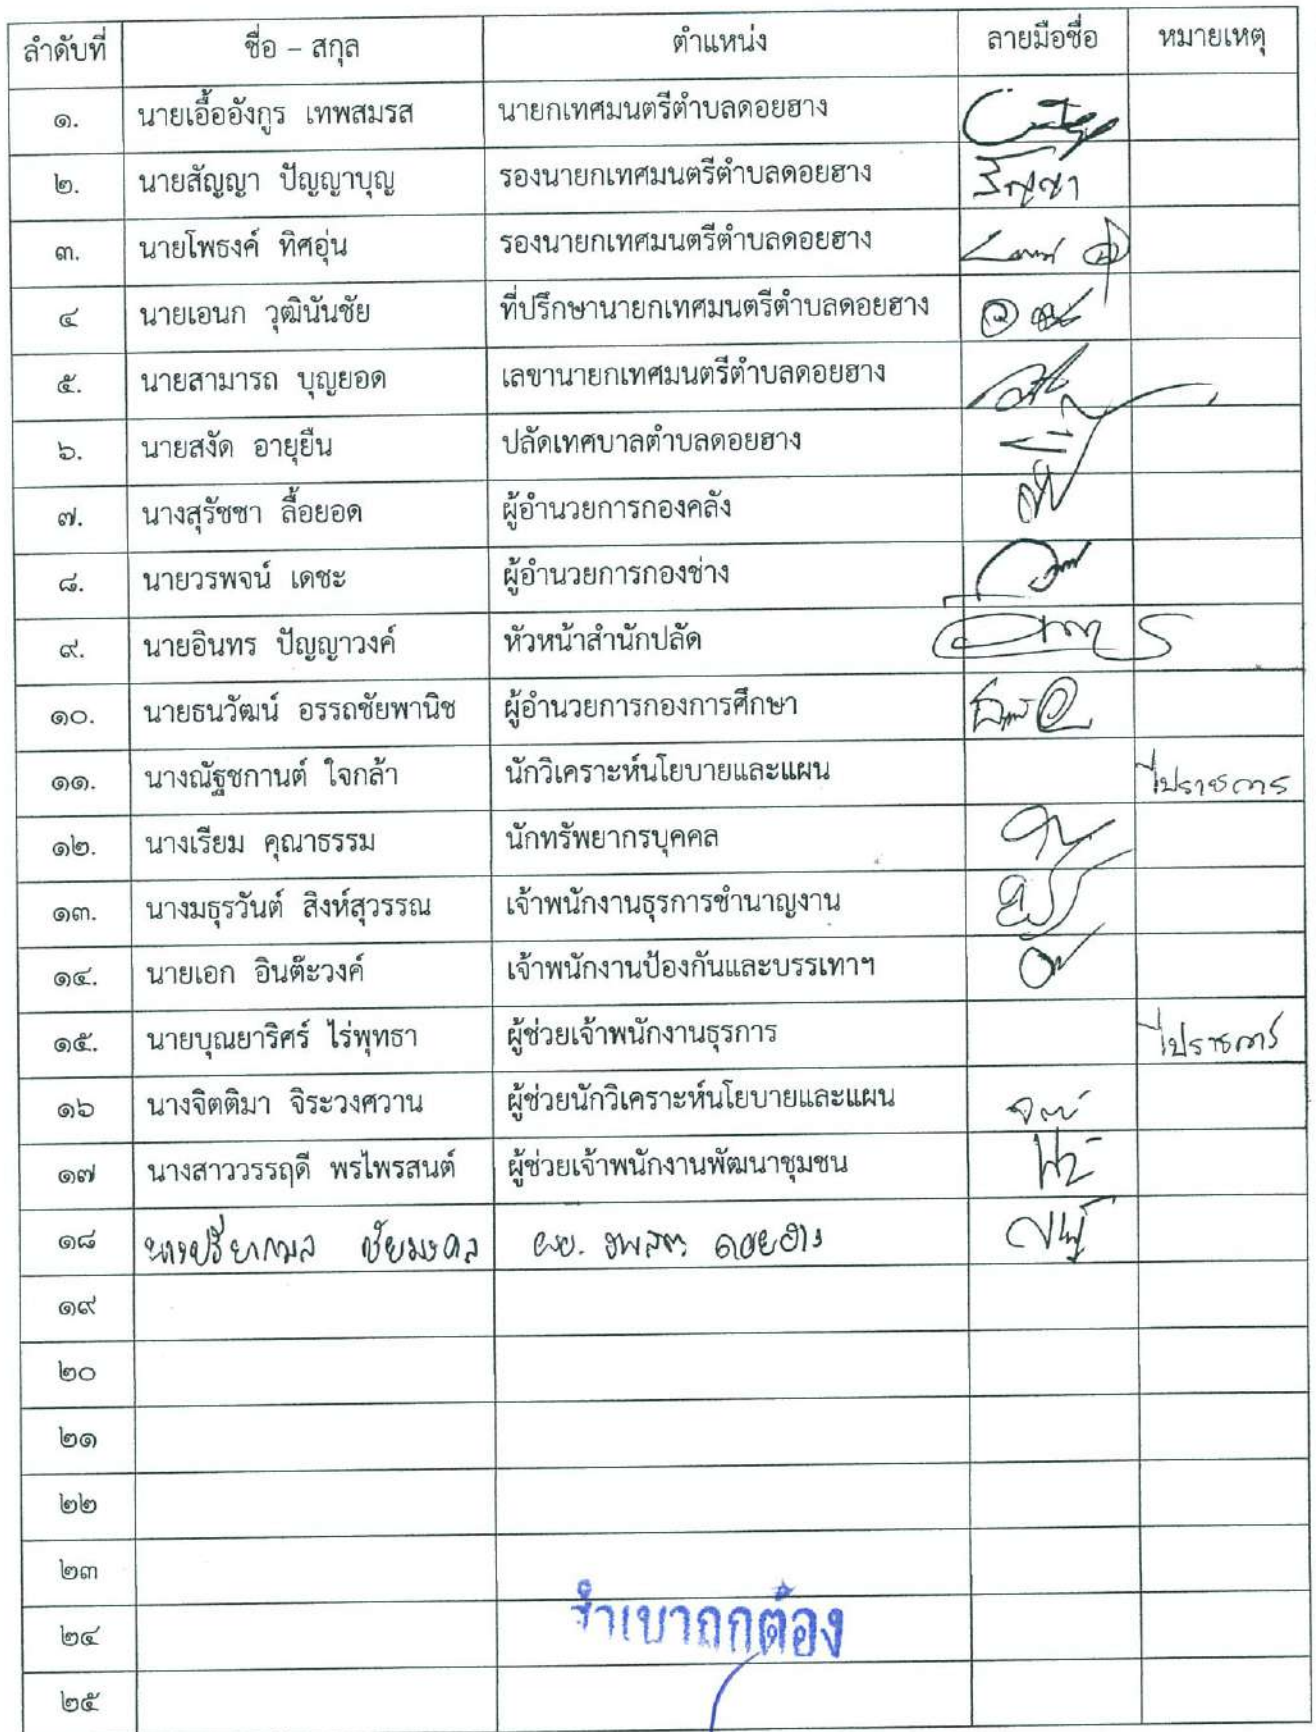 ลำดับที่ ชื่อ – สกุล ตำแหน่ง ลายมือชื่อ หมายเหตุ
๑. นายเอื้ออังกูร เทพสมรส นายกเทศมนตรีตำบลดอยฮาง
๒. นายสัญญา ปัญญาบุญ รองนายกเทศมนตรีตำบลดอยฮาง สัญญา
๓. นายโพธงค์ ทิศอุ่น รองนายกเทศมนตรีตำบลดอยฮาง
๔ นายเอนก วุฒินันชัย ที่ปรึกษานายกเทศมนตรีตำบลดอยฮาง
๕. นายสามารถ บุญยอด เลขานายกเทศมนตรีตำบลดอยฮาง
๖. นายสงัด อายุยืน ปลัดเทศบาลตำบลดอยฮาง
๗. นางสุรัชชา ลื้อยอด ผู้อำนวยการกองคลัง
๘. นายวรพจน์ เดชะ ผู้อำนวยการกองช่าง
๙. นายอินทร ปัญญาวงค์ หัวหน้าสำนักปลัด
๑๐. นายธนวัฒน์ อรรถชัยพานิช ผู้อำนวยการกองการศึกษา
๑๑. นางณัฐชกานต์ ใจกล้า นักวิเคราะห์นโยบายและแผน ไปราชการ
๑๒. นางเรียม คุณาธรรม นักทรัพยากรบุคคล
๑๓. นางมธุรวันต์ สิงห์สุวรรณ เจ้าพนักงานธุรการชำนาญงาน
๑๔. นายเอก อินต๊ะวงค์ เจ้าพนักงานป้องกันและบรรเทาฯ
๑๕. นายบุณยาริศร์ ไร่พุทธา ผู้ช่วยเจ้าพนักงานธุรการ ไปราชการ
๑๖ นางจิตติมา จิระวงศวาน ผู้ช่วยนักวิเคราะห์นโยบายและแผน
๑๗ นางสาววรรฤดี พรไพรสนต์ ผู้ช่วยเจ้าพนักงานพัฒนาชุมชน
๑๘ นางปรียากมล ชัยมงคล ผอ. รพสต ดอยฮาง
๑๙
๒๐
๒๑
๒๒
๒๓
สำเนาถูกต้อง
๒๔
๒๕